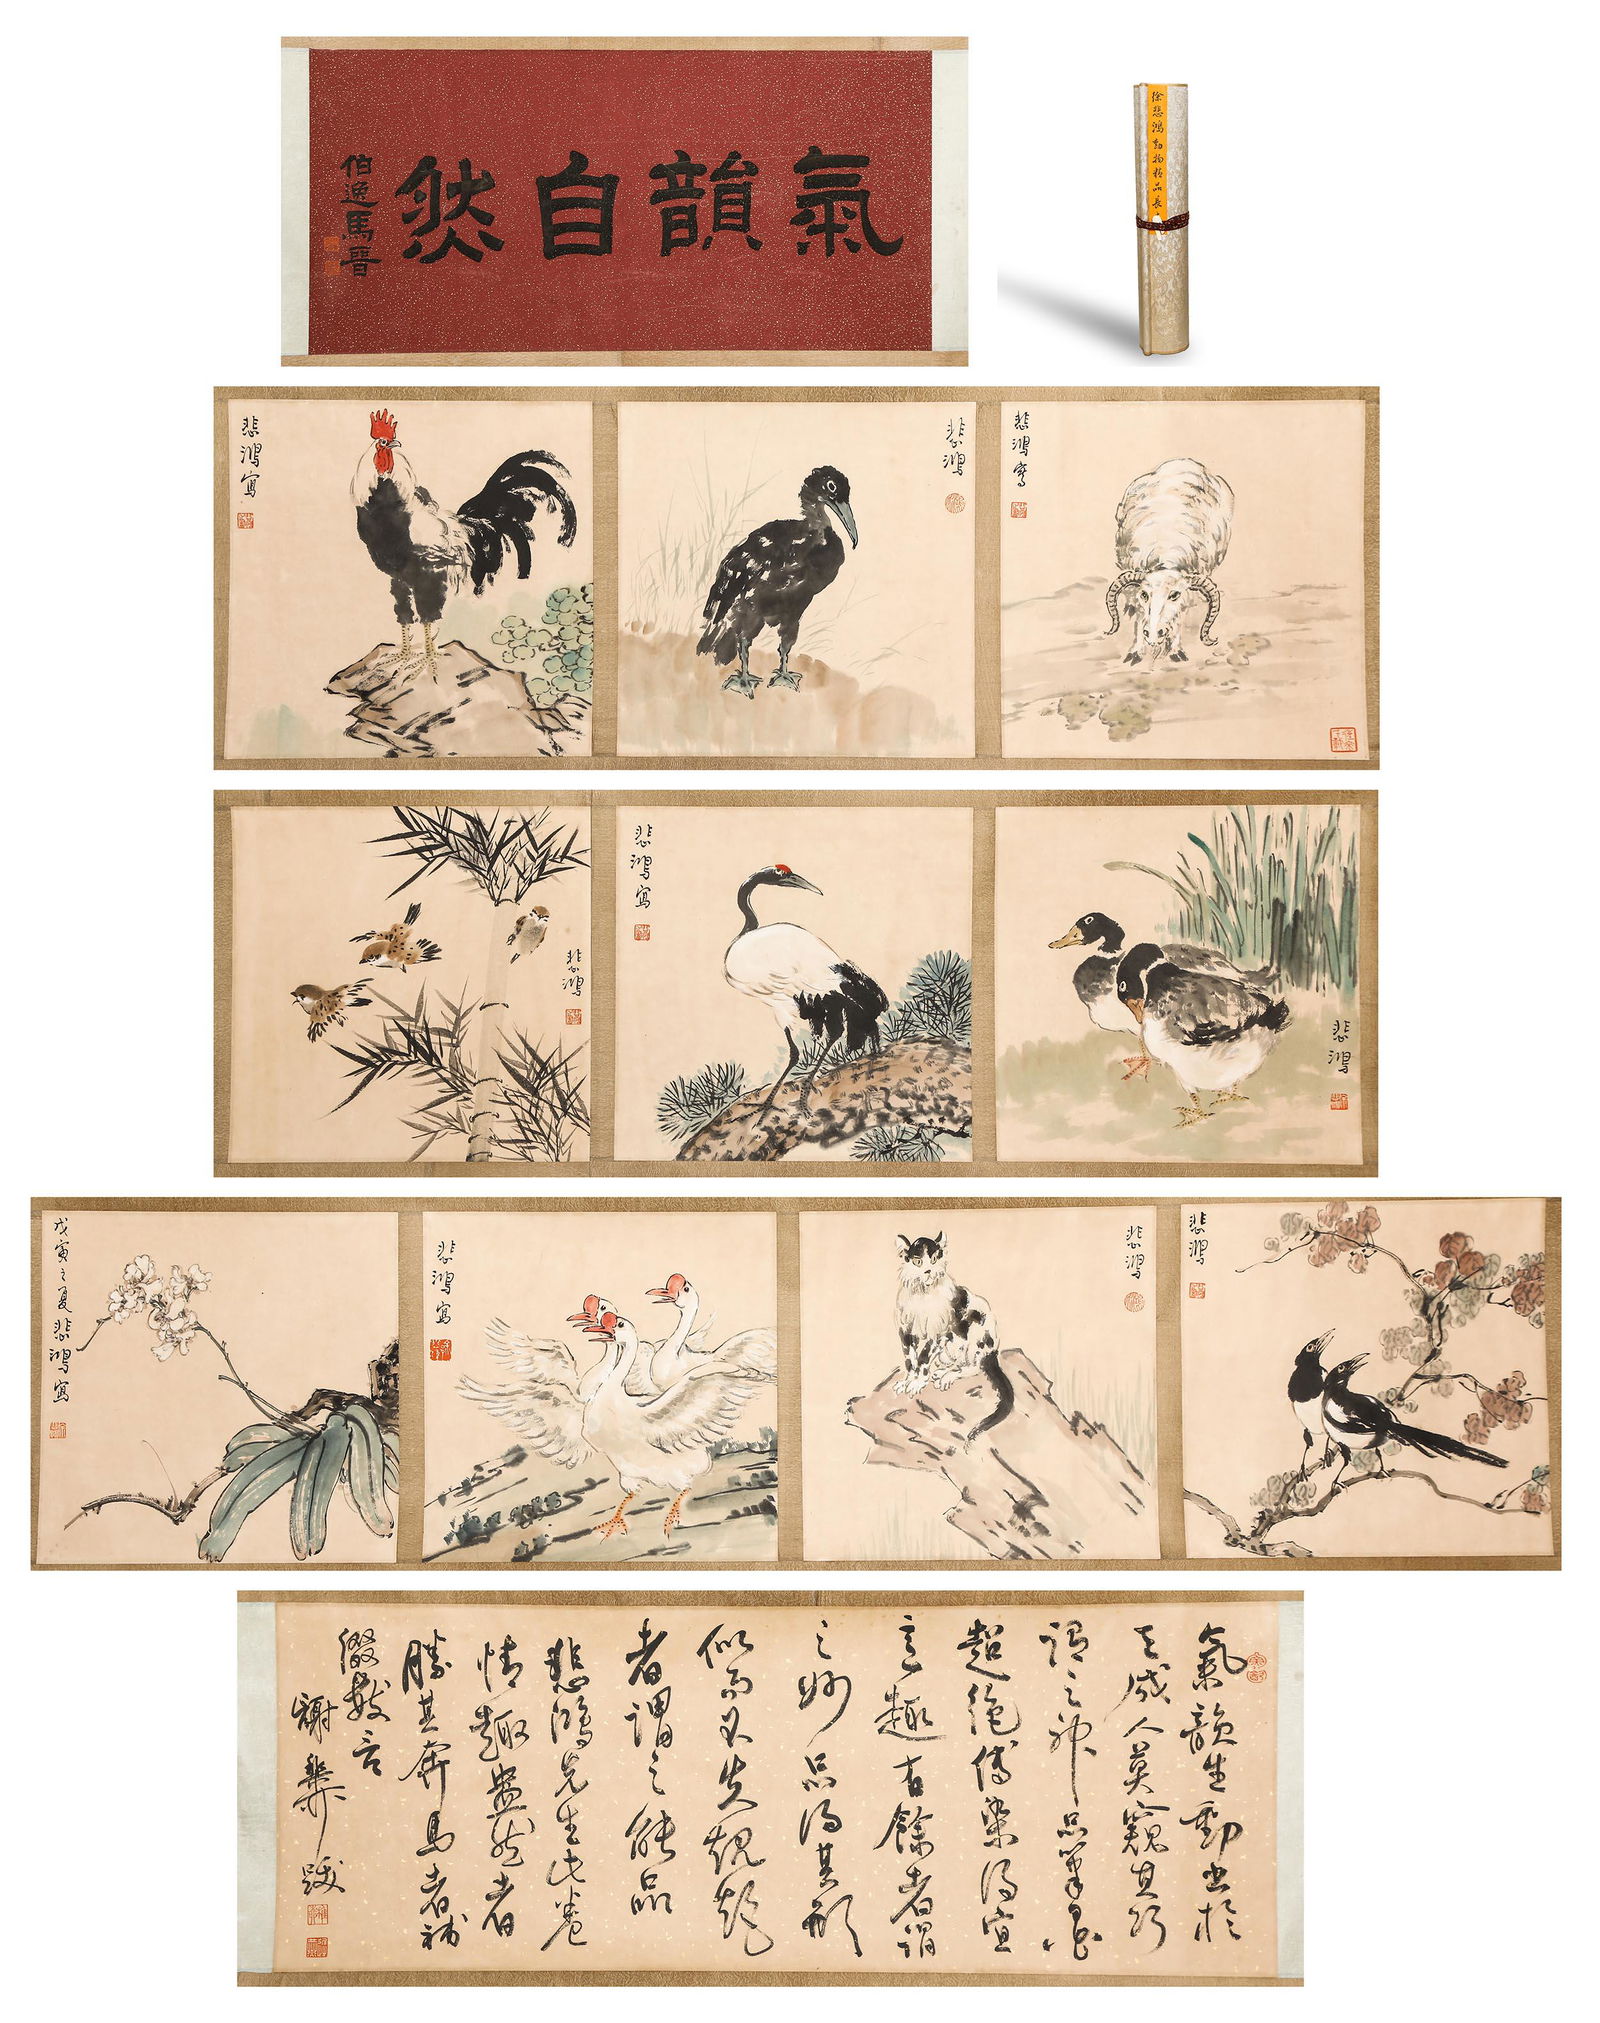 氣韻自然
伯逸馬晉
徐悲鴻動物精品長
悲鴻寫
悲鴻
悲鴻寫
悲鴻
悲鴻寫
悲鴻
戊寅之夏悲鴻寫
悲鴻寫
悲鴻
悲鴻
氣韻生動出於
天成人莫窺其巧
謂之神品筆墨
超絕傅染得宜
意趣有餘者謂
之妙品得其形
似而不失規矩
者謂之能品
悲鴻先生此卷
情趣盎然者
勝其奔馬者補
綴數言
謝無跋